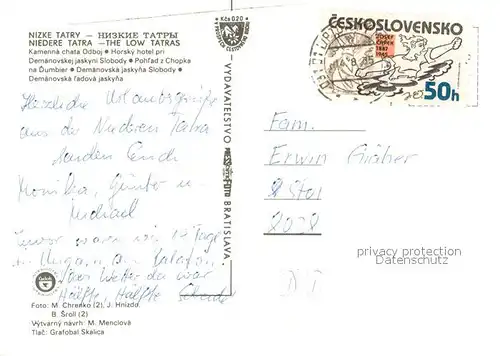 NÍZKE TATRY – НИЗКИЕ ТАТРЫ
NIEDERE TATRA – THE LOW TATRAS
Kamenná chata Odboj • Horský hotel pri
Demänovskej jaskyni Slobody • Pohľad z Chopka
na Ďumbier • Demänovská jaskyňa Slobody •
Demänovská ľadová jaskyňa
Herzliche Urlaubsgrüße
aus der Niederen Tatra
senden Euch
Monika, Günter u.
Michael
Zuvor waren wir 12 Tage
in Ungarn, am Balaton.
Das Wetter da war
Hälfte, Hälfte
Foto: M. Chrenko (2), J. Hnízdo,
B. Šroll (2)
Výtvarný návrh: M. Menclová
Tlač: Grafobal Skalica
Kčs 0,20
VYDAVATEĽSTVO
BRATISLAVA
ČESKOSLOVENSKO
JOSEF
ČAPEK
1887
1945
50h
Fam.
Erwin Gräber
privacy protected
Datenschutz